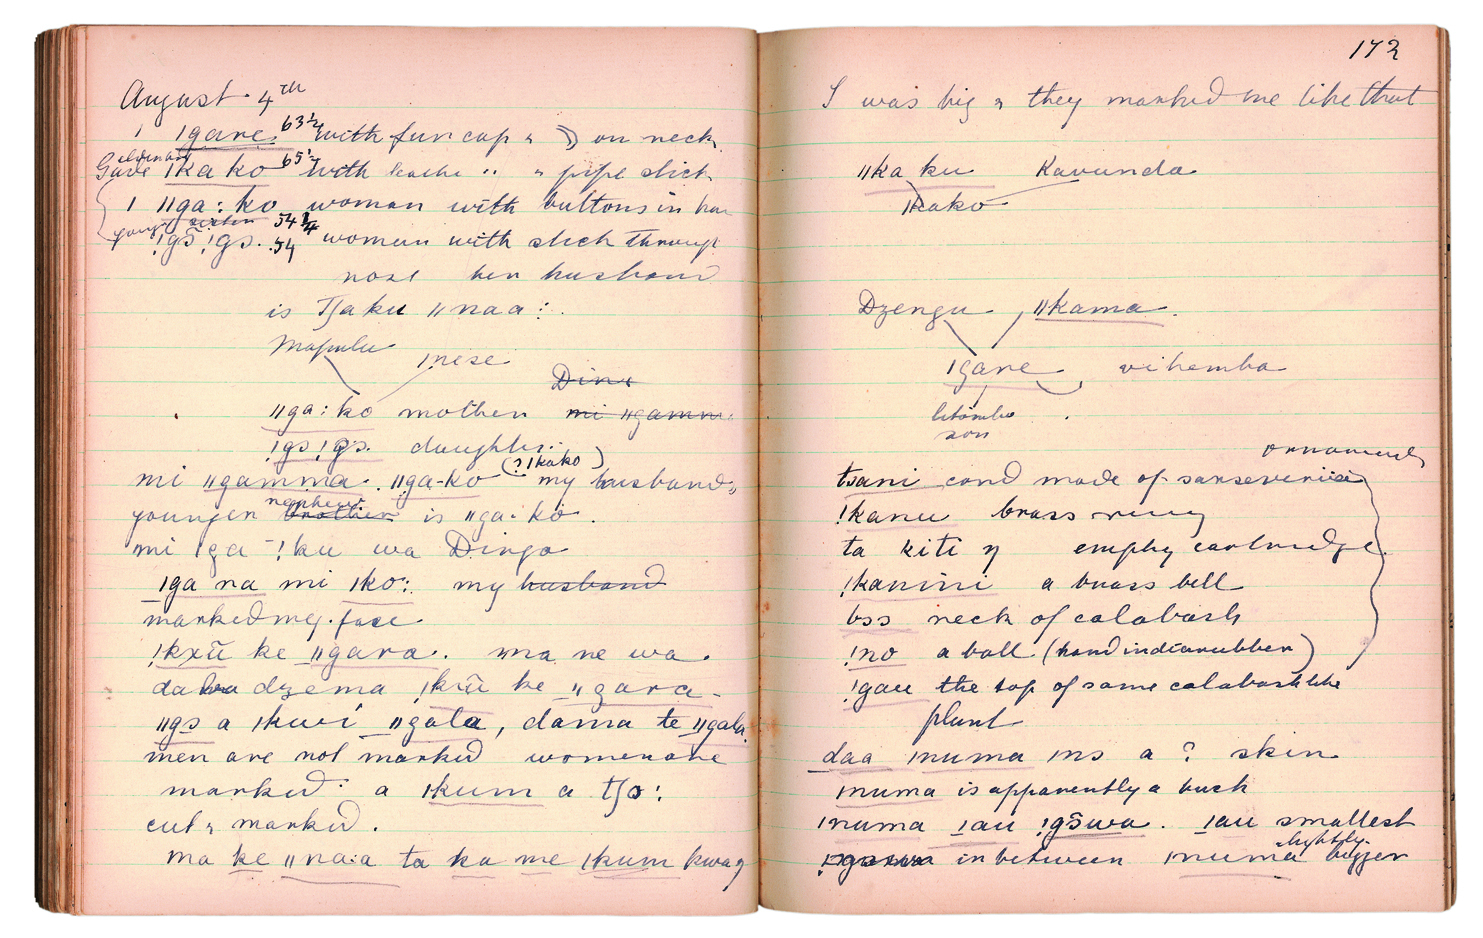 August 4th
1 ǀgare 63½ with fur cap & on neck
Gave ǀkako 65½ with kachi " " pipe stick
1 ǁga:ko woman with buttons in hair
!gɔ̃!gɔ. 54 woman with stick through
nose her husband
is Tʃaku ǁnaa:
Mapulu ǀnese
Dina
ǁga:ko mother mi ǁgamma
!gɔ!gɔ. daughter.
(? ǀkako)
mi ǁgamma. ǁga-ko my husband's
nephew
younger brother is ǁga:ko.
mi ǀga-!ku wa Dinga
ǀga na mi ǀko: my husband
marked my face
!kxũ ke ǁgara. ma ne wa
daba dzema !kxũ ke ǁgara-
ǁgɔ a ǀkwi ǁgala, dama te ǁgala
men are not marked women are
marked: a ǀkum a tʃɔ:
cut & marked.
ma ke ǁna:a ta ka me ǀkum kwaŋ
172
I was big & they marked me like that
ǁka ku Kavunda
ǀkako
Dzengu, ǁkama.
ǀgare vihemba
litombo
son
ornaments
tsani cord made of sanseveria
!kanu brass ring
ta kiti ŋ empty cartridge.
!kanini a brass bell
bɔɔ neck of calabash
!no a ball (hard indiarubber)
!gau the top of some calabash like
plant
daa ǀnuma mɔ a ? skin
ǀnuma is apparently a buck
ǀnuma ǀau !gɔ̃wa. ǀau smallest
slightly
in between ǀnuma bigger